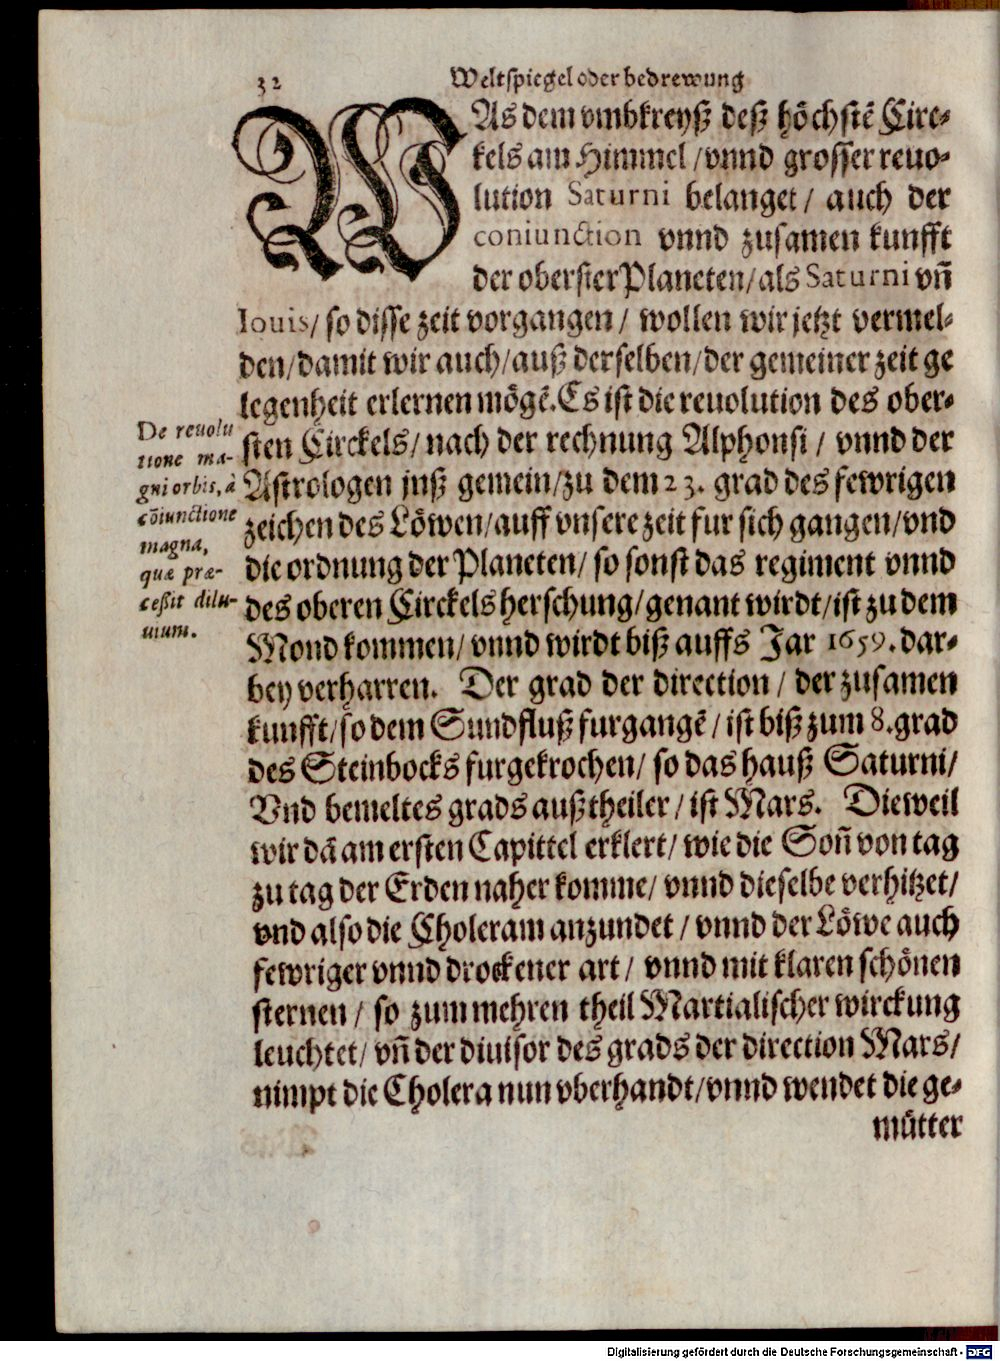 32
Weltspiegel oder bedrewung
WAs dem vmbkreyß deß höchstẽ Circ-
kels am Himmel / vnnd grosser reuo-
lution Saturni belanget / auch der
coniunction vnnd zusamen kunfft
der oberster Planeten / als Saturni vñ
Iouis / so disse zeit vorgangen / wollen wir jetzt vermel-
den / damit wir auch / auß derselben / der gemeiner zeit ge
legenheit erlernen mögẽ. Es ist die reuolution des ober-
sten Circkels / nach der rechnung Alphonsi / vnnd der
Astrologen jnß gemein / zu dem 23. grad des fewrigen
zeichen des Löwen / auff vnsere zeit fur sich gangen / vnd
die ordnung der Planeten / so sonst das regiment vnnd
des oberen Circkels herschung / genant wirdt / ist zu dem
Mond kommen / vnnd wirdt biß auffs Jar 1659. dar-
bey verharren. Der grad der direction / der zusamen
kunfft / so dem Sundfluß furgangẽ / ist biß zum 8. grad
des Steinbocks furgekrochen / so das hauß Saturni /
Vnd bemeltes grads außtheiler / ist Mars. Dieweil
wir dã am ersten Capittel erklert / wie die Soñ von tag
zu tag der Erden naher komme / vnnd dieselbe verhitzet /
vnd also die Choleram anzundet / vnnd der Löwe auch
fewriger vnnd drockener art / vnnd mit klaren schönen
sternen / so zum mehren theil Martialischer wirckung
leuchtet / vñ der diuisor des grads der direction Mars /
nimpt die Cholera nun vberhandt / vnnd wendet die ge-
mütter
De reuolu
tione ma-
gni orbis, à
cõiunctione
magna,
quæ præ-
ceßit dilu-
uium.
Digitalisierung gefördert durch die Deutsche Forschungsgemeinschaft - DFG